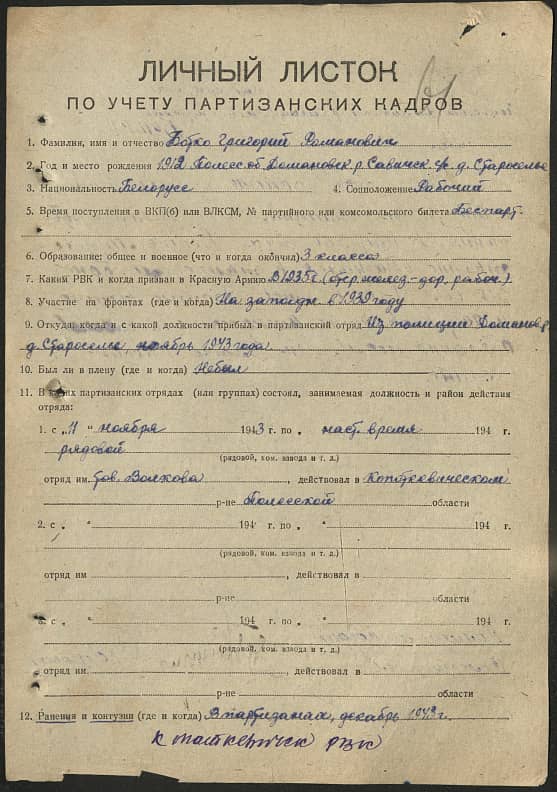 ЛИЧНЫЙ ЛИСТОК
ПО УЧЕТУ ПАРТИЗАНСКИХ КАДРОВ
1. Фамилия, имя и отчество Бобко Григорий Романович
2. Год и место рождения 1912 Полесс об. Домановск р. Савинск д. Староселье
3. Национальность Белорусс 4. Соцположение Рабочий
5. Время поступления в ВКП(б) или ВЛКСМ, № партийного или комсомольского билета Беспарт.
6. Образование: общее и военное (что и когда окончил) 3 класса
7. Каким РВК и когда призван в Красную Армию В 1935 г. желез.-дор. рабоч.)
8. Участие на фронтах (где и когда) На западн. в 1939 году
9. Откуда, когда и с какой должности прибыл в партизанский отряд Из полиции Доманов. р
д. Староселье, ноябрь 1943 года.
10. Был ли в плену (где и когда) Не был
11. В каких партизанских отрядах (или группах) состоял, занимаемая должность и район действия
отряда:
1. с „11" ноября 1943 г. по „ наст. время 194 г.
рядовой
(рядовой, ком. взвода и т. д.)
отряд им. тов. Волкова, действовал в Копаткевическом
р-не Полесской области
2. с „ " 194 г. по „ " 194 г.
(рядовой, ком. взвода и т. д.)
отряд им , действовал в
р-не области
3. с „ " 194 г. по „ " 194 г.
(рядовой, ком. взвода и т. д.)
отряд им , действовал в
р-не области
12. Ранения и контузии (где и когда) В партизанах, декабрь 1943 г.
РВК